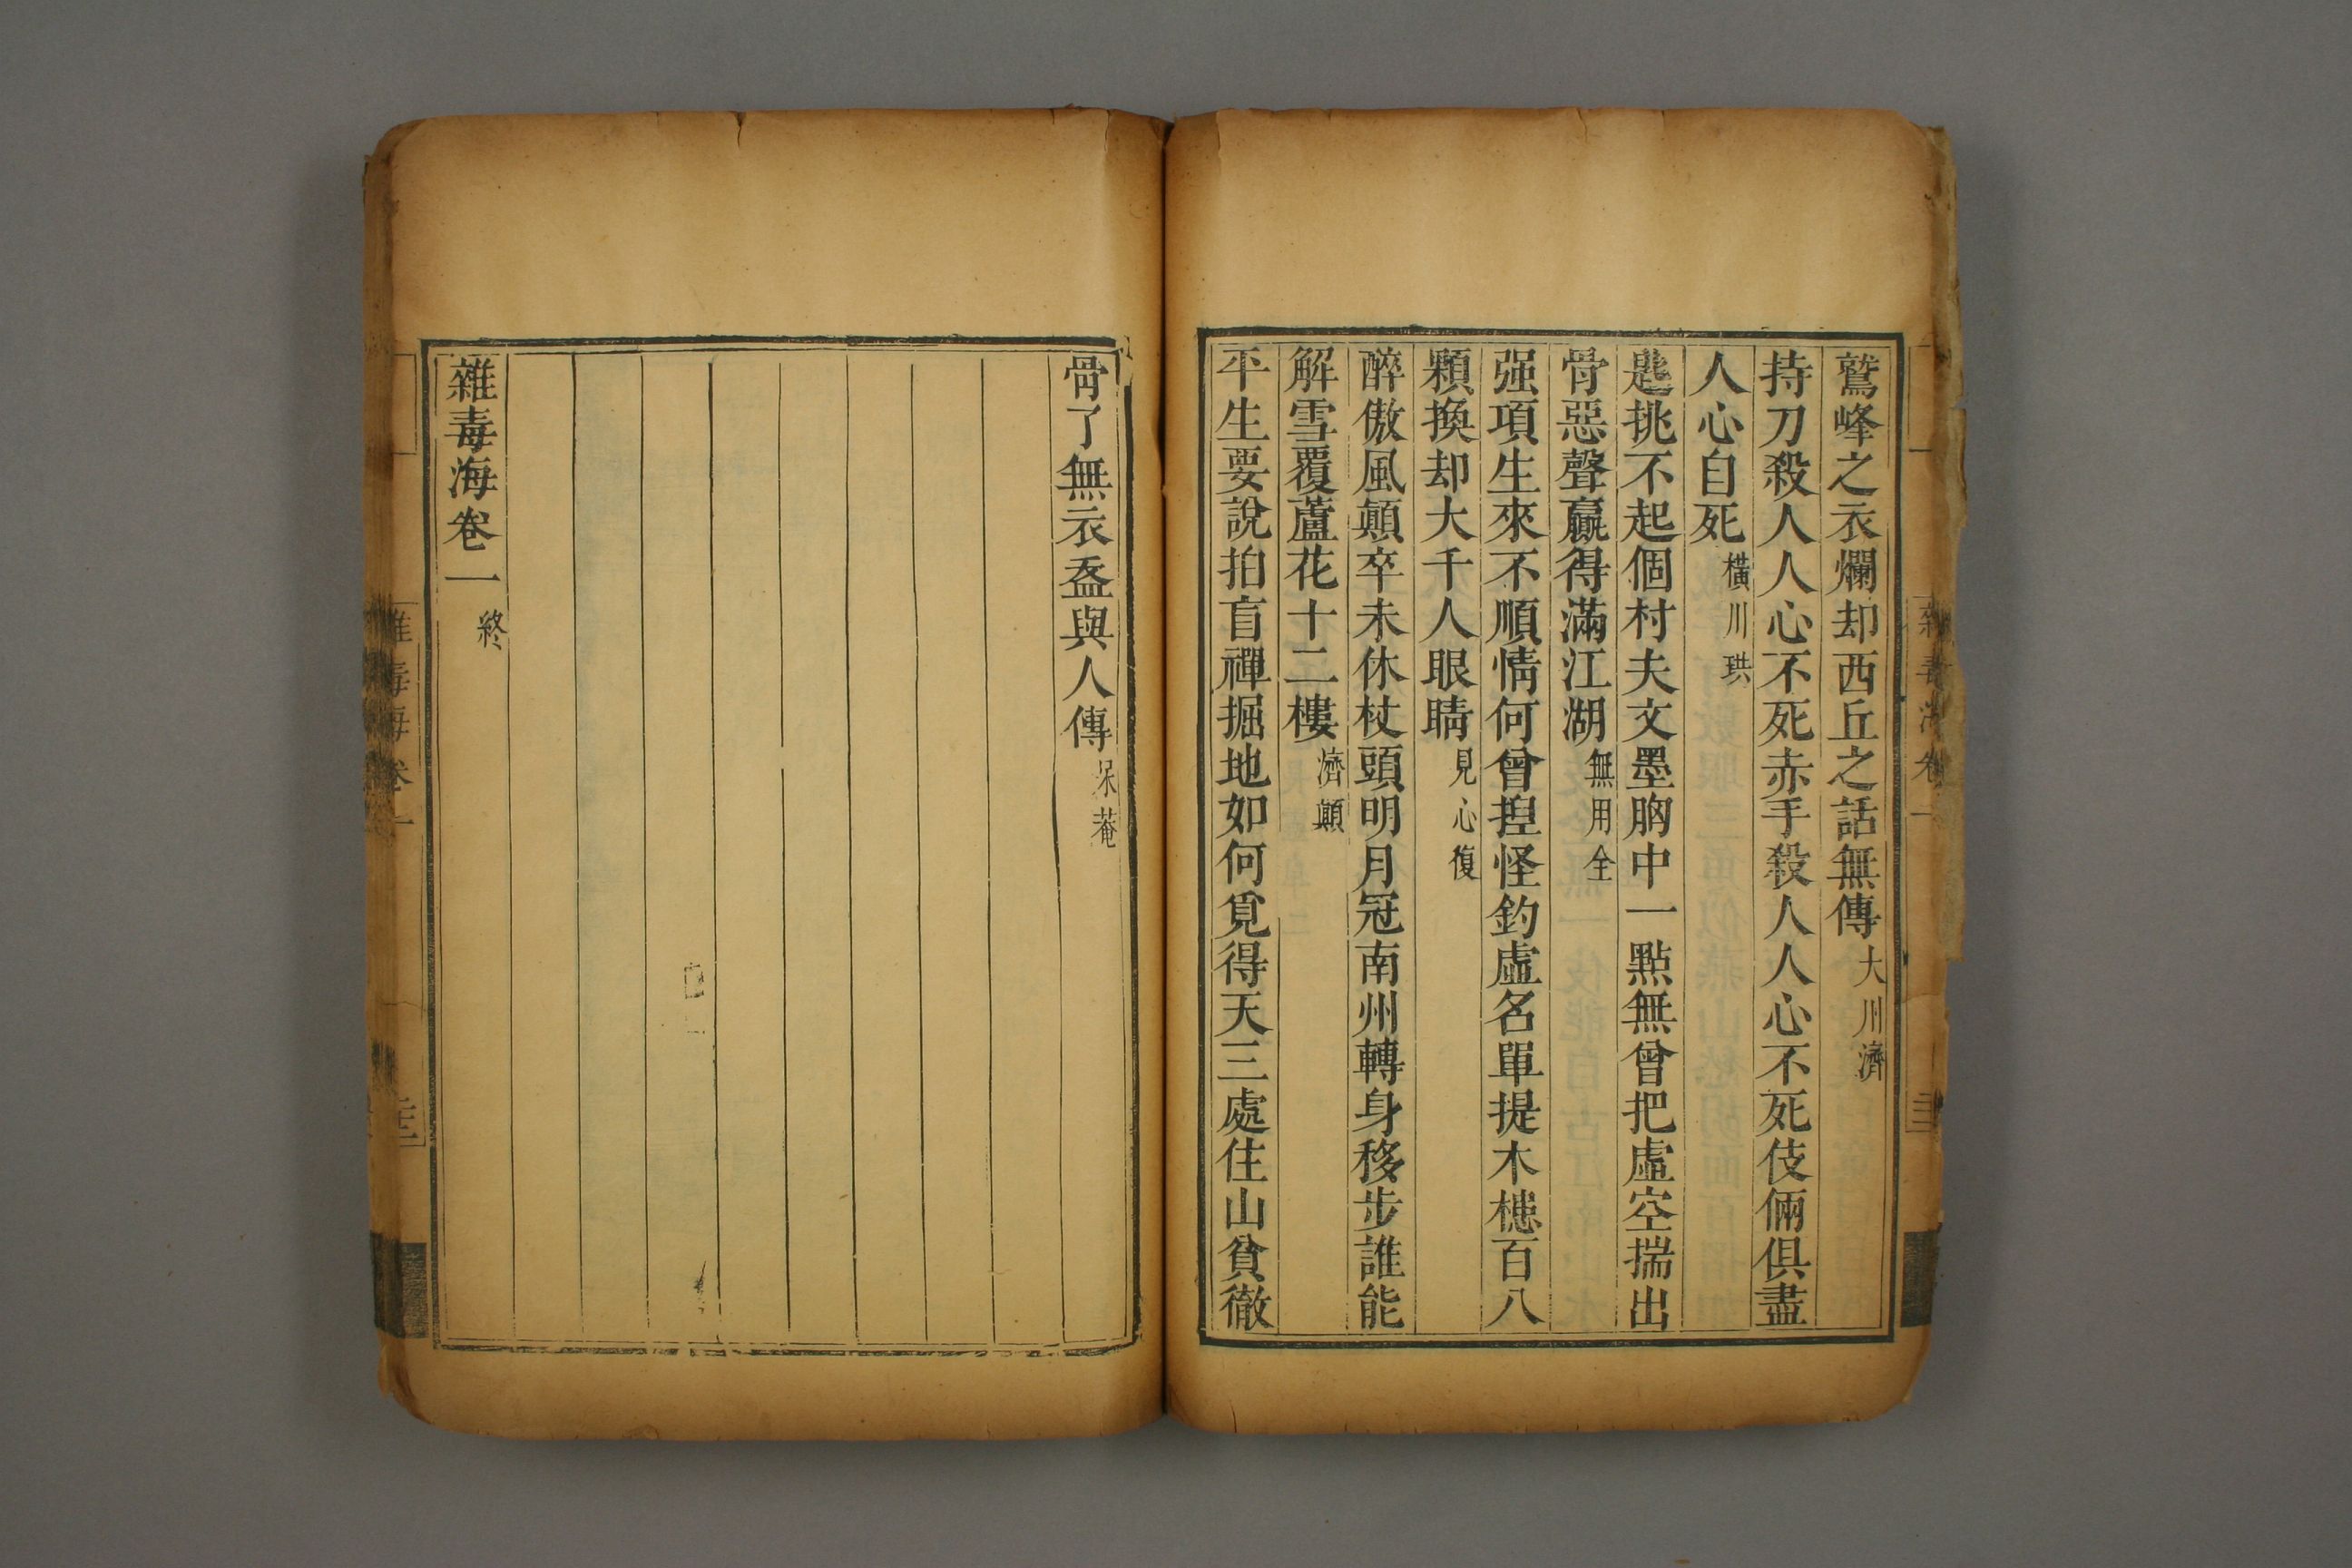 鷲峰之衣爛却西丘之話無傳大川濟
持刀殺人人心不死赤手殺人人心不死伎倆俱盡
人心自死橫川珙
匙挑不起個村夫文墨胸中一點無曾把虛空揣出
骨惡聲贏得滿江湖無用全
强項生來不順情何曾揑怪釣虛名單提木槵百八
顆換却大千人眼睛見心復
醉傲風顛卒未休杖頭明月冠南州轉身移步誰能
解雪覆蘆花十二樓濟顛
平生要說拍盲禪掘地如何覓得天三處住山貧徹
骨了無衣盋與人傳呆菴
雜毒海卷一終
雜毒海卷一